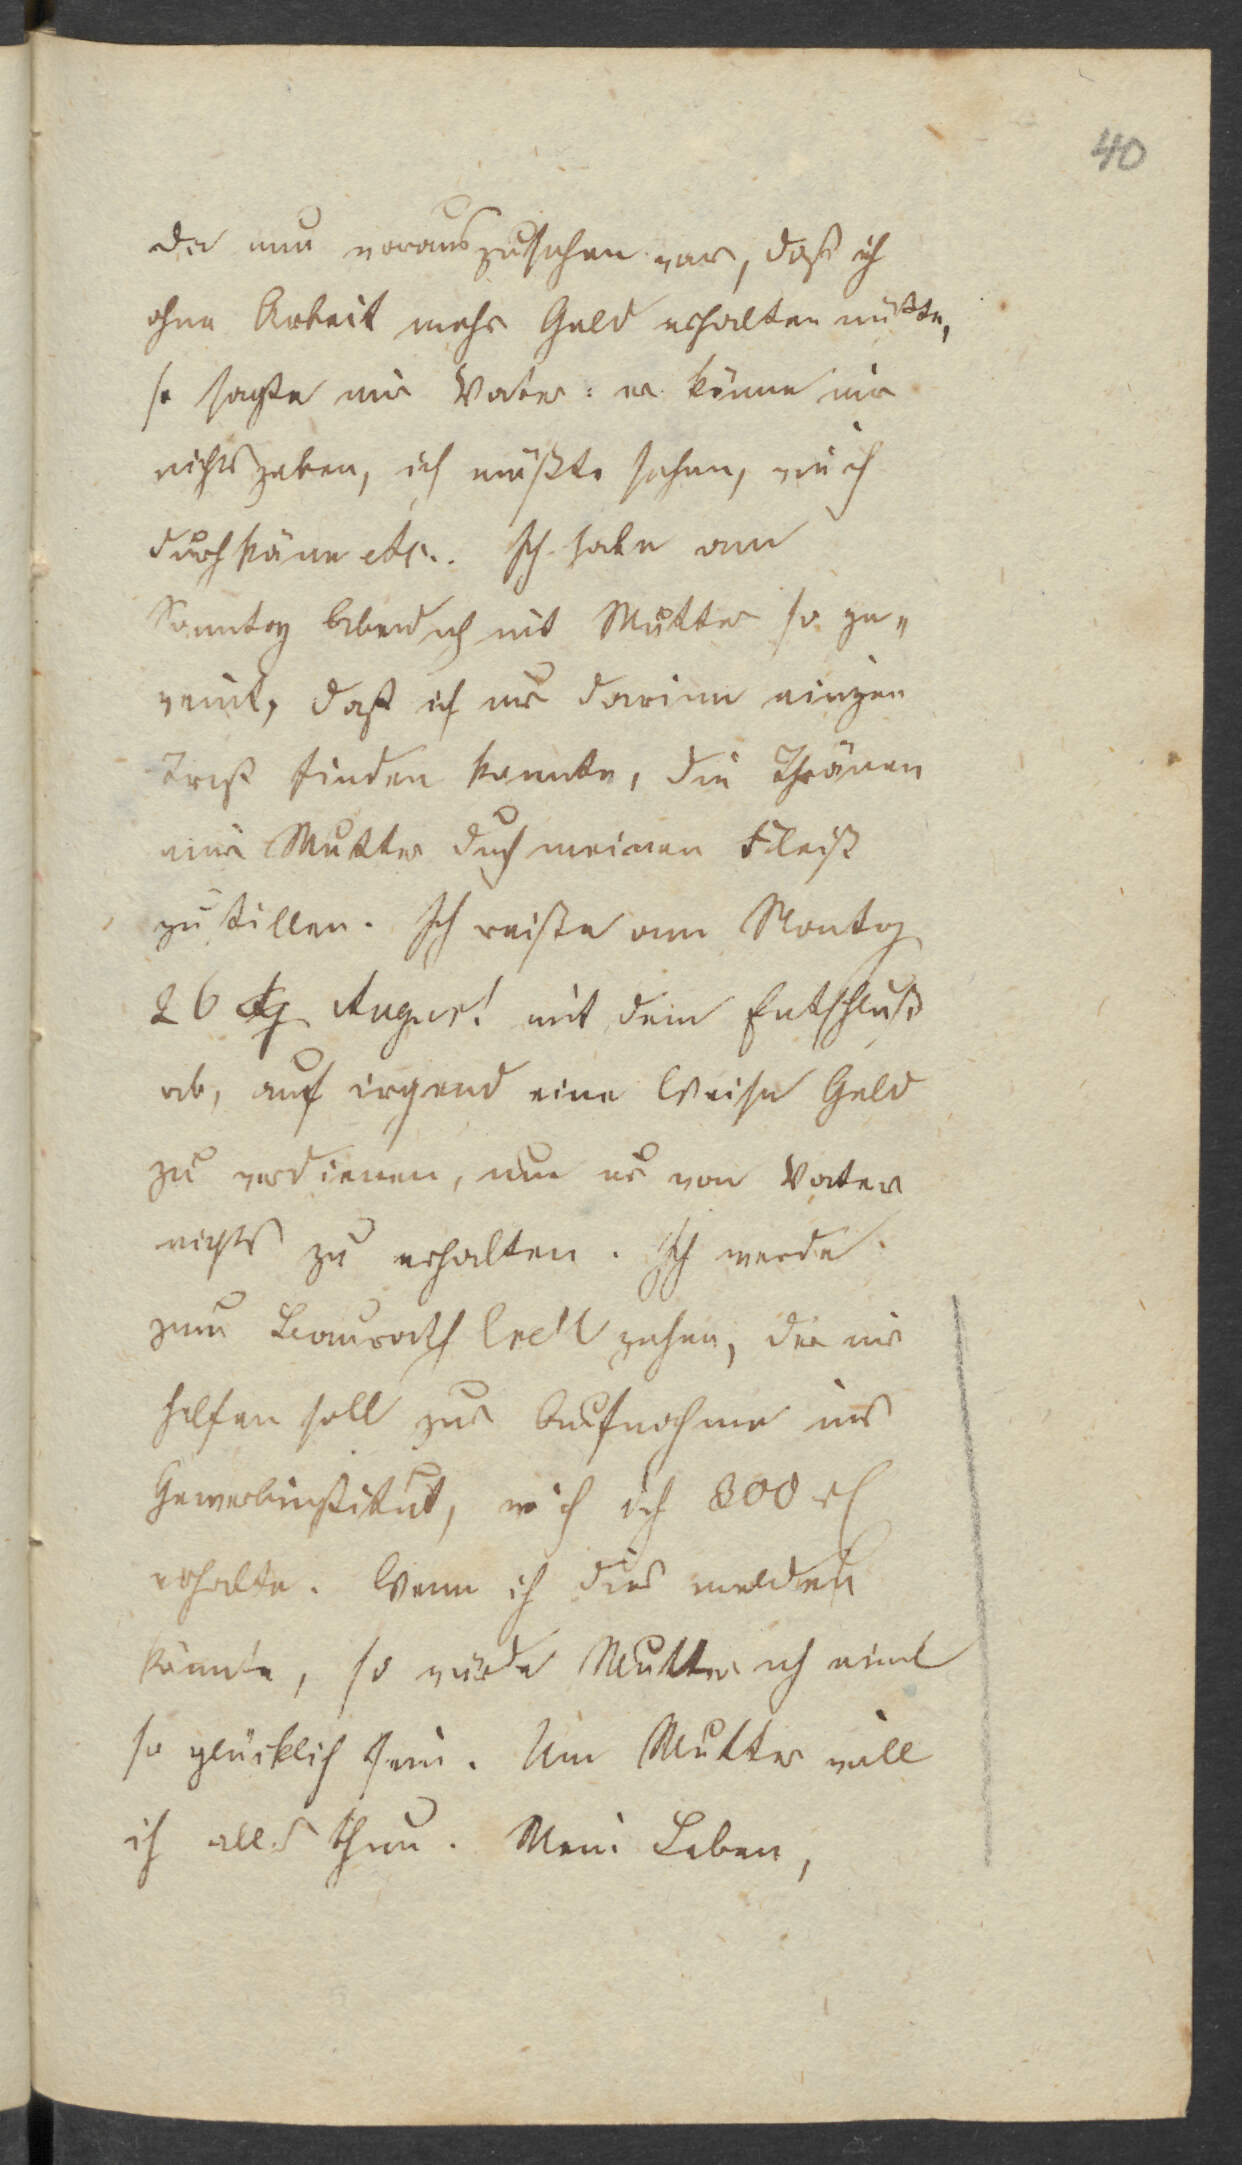 40
da nun vorauszusehen war, daß ich
ohne Arbeit mehr Geld erhalten müßte,
so sagte mir Vater: er könne mir
nichts geben, ich müßte sehen, wie ich
durchkäme etc. Ich habe am
Sonntag Abend ich mit Mutter so ge„
weint, daß ich nur darinn einigen
Trost finden konnte, die Thränen
einer Mutter durch meinen Fleiß
zu stillen. Ich reißte am Montag
26 August mit dem Entschluß
ab, auf irgend eine Weise Geld
zu verdienen, um nur von Vater
nichts zu erhalten. Ich werde
zum Baurath gehen, der mir
helfen soll zur Aufnahme ins
Gewerbinstitut, wo ich 300 rl
erhalte. Wenn ich dies melden
könnte, so würde Mutter
so glücklich sein. Um Mutter will
ich alles thun. Mein Leben,